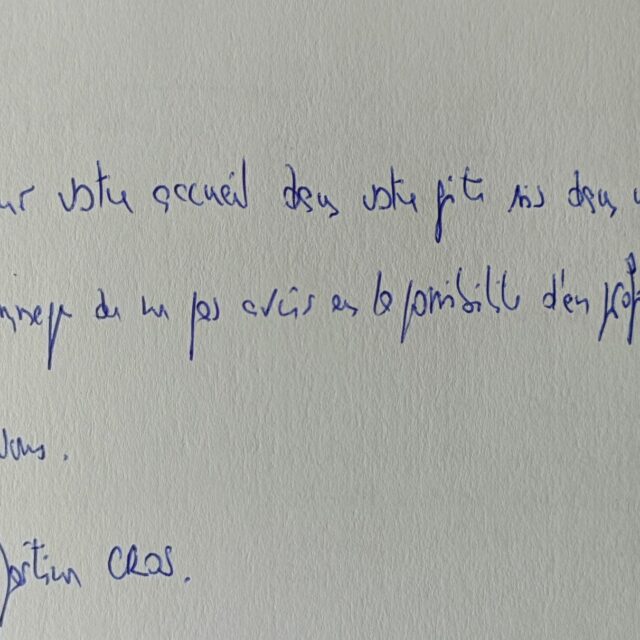 ur votre accueil dans votre gîte sis dans
de ne pas avoir eu la possibilité d'en prof
vous.
CROS.